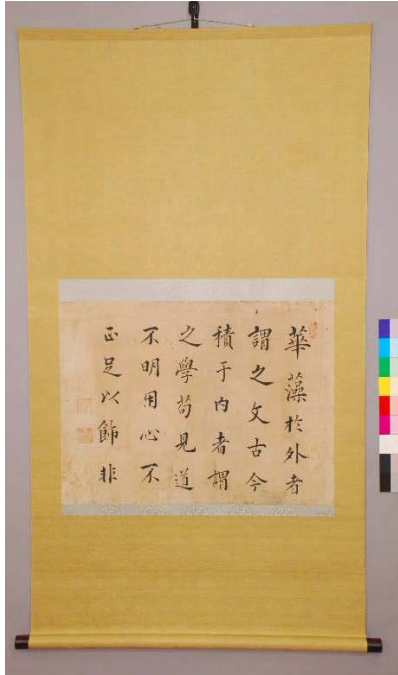 華藻於外者
謂之文古今
積于内者謂
之學苟見道
不明用心不
正足以飾非